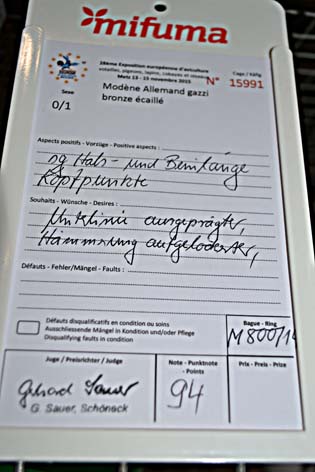 mifuma
28ème Exposition européenne d'aviculture
volailles, pigeons, lapins, cobayes et oiseaux
Metz 13 - 15 novembre 2015
Cage / Käfig
N° 15991
Sexe
0/1
Modène Allemand gazzi
bronze écaillé
Aspects positifs - Vorzüge - Positive aspects :
sg Hals- und Beinlänge
Kopfpunkte
Souhaits - Wünsche - Desires :
Unterlinie ausgeprägter,
Hämmerung aufgelockerter,
Défauts - Fehler/Mängel - Faults :
Défauts disqualificatifs en condition ou soins
Ausschliessende Mängel in Kondition und/oder Pflege
Disqualifying faults in condition
Bague - Ring
M 800/14
Juge / Preisrichter / Judge
Note - Punktnote
- Points
Prix - Preis - Prize
Gerhard Sauer
G. Sauer, Schöneck
94